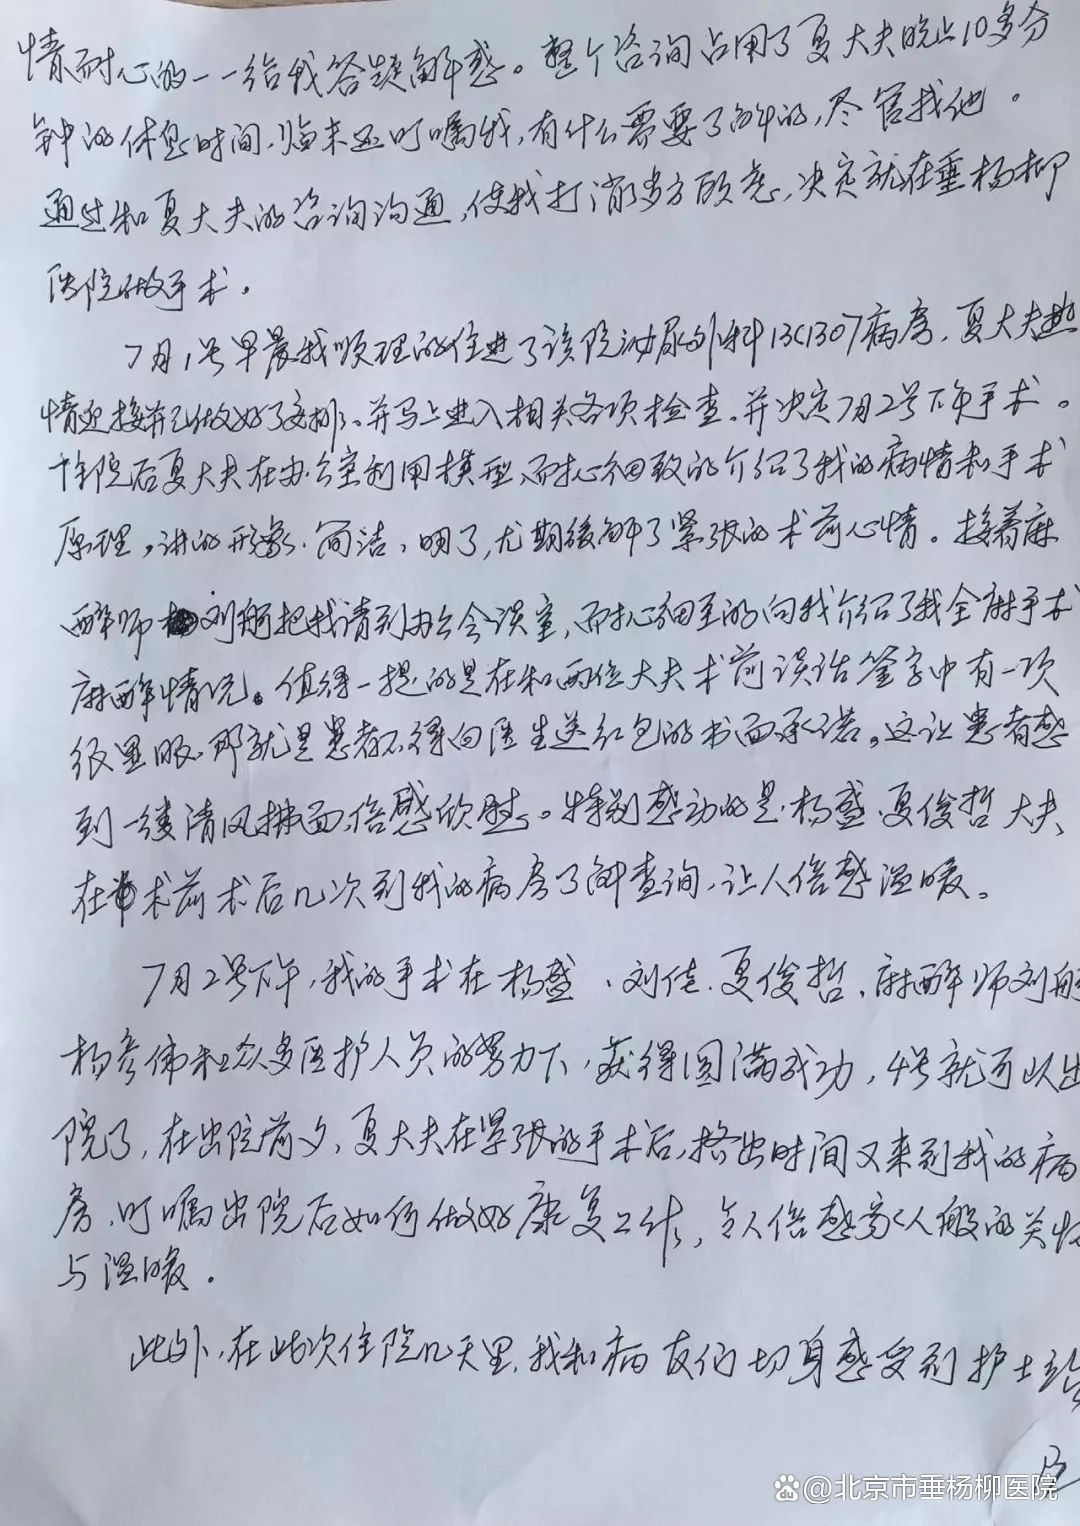 情耐心的一一给我答疑解惑。整个咨询占用了夏大夫晚上10多分
钟的休息时间，临末还叮嘱我，有什么需要了解的，尽管找他。
通过和夏大夫的咨询沟通，使我打消了多方顾虑，决定就在垂杨柳
医院做手术。
7月1号早晨我顺理的住进了该院泌尿外科13C1307病房，夏大夫热
情迎接并已做好了安排，并马上进入相关各项检查，并决定7月2号下午手术。
住院后夏大夫在办公室利用模型，耐心细致的介绍了我的病情和手术
原理，讲的形象、简洁、明了，尤期缓解了紧张的术前心情。接着麻
醉师刘舸把我请到办公会议室，耐心细至的向我介绍了我全麻手术
麻醉情况。值得一提的是在和两位大夫术前谈话签字中有一项
很显眼，那就是患者不得向医生送红包的书面承诺。这让患者感
到一缕清风拂面，倍感欣慰。特别感动的是，杨盛、夏俊哲大夫，
在术前术后几次到我的病房了解查询，让人倍感温暖。
7月2号下午，我的手术在杨盛、刘佳、夏俊哲、麻醉师刘舸
杨彦伟和众多医护人员的努力下，获得圆满成功，4号就可以出
院了，在出院前夕，夏大夫在紧张的手术后，挤出时间又来到我的病
房，叮嘱出院后如何做好康复工作，令人倍感家人般的关怀
与温暖。
此外，在此次住院几天里，我和病友们切身感受到护士站
@北京市垂杨柳医院